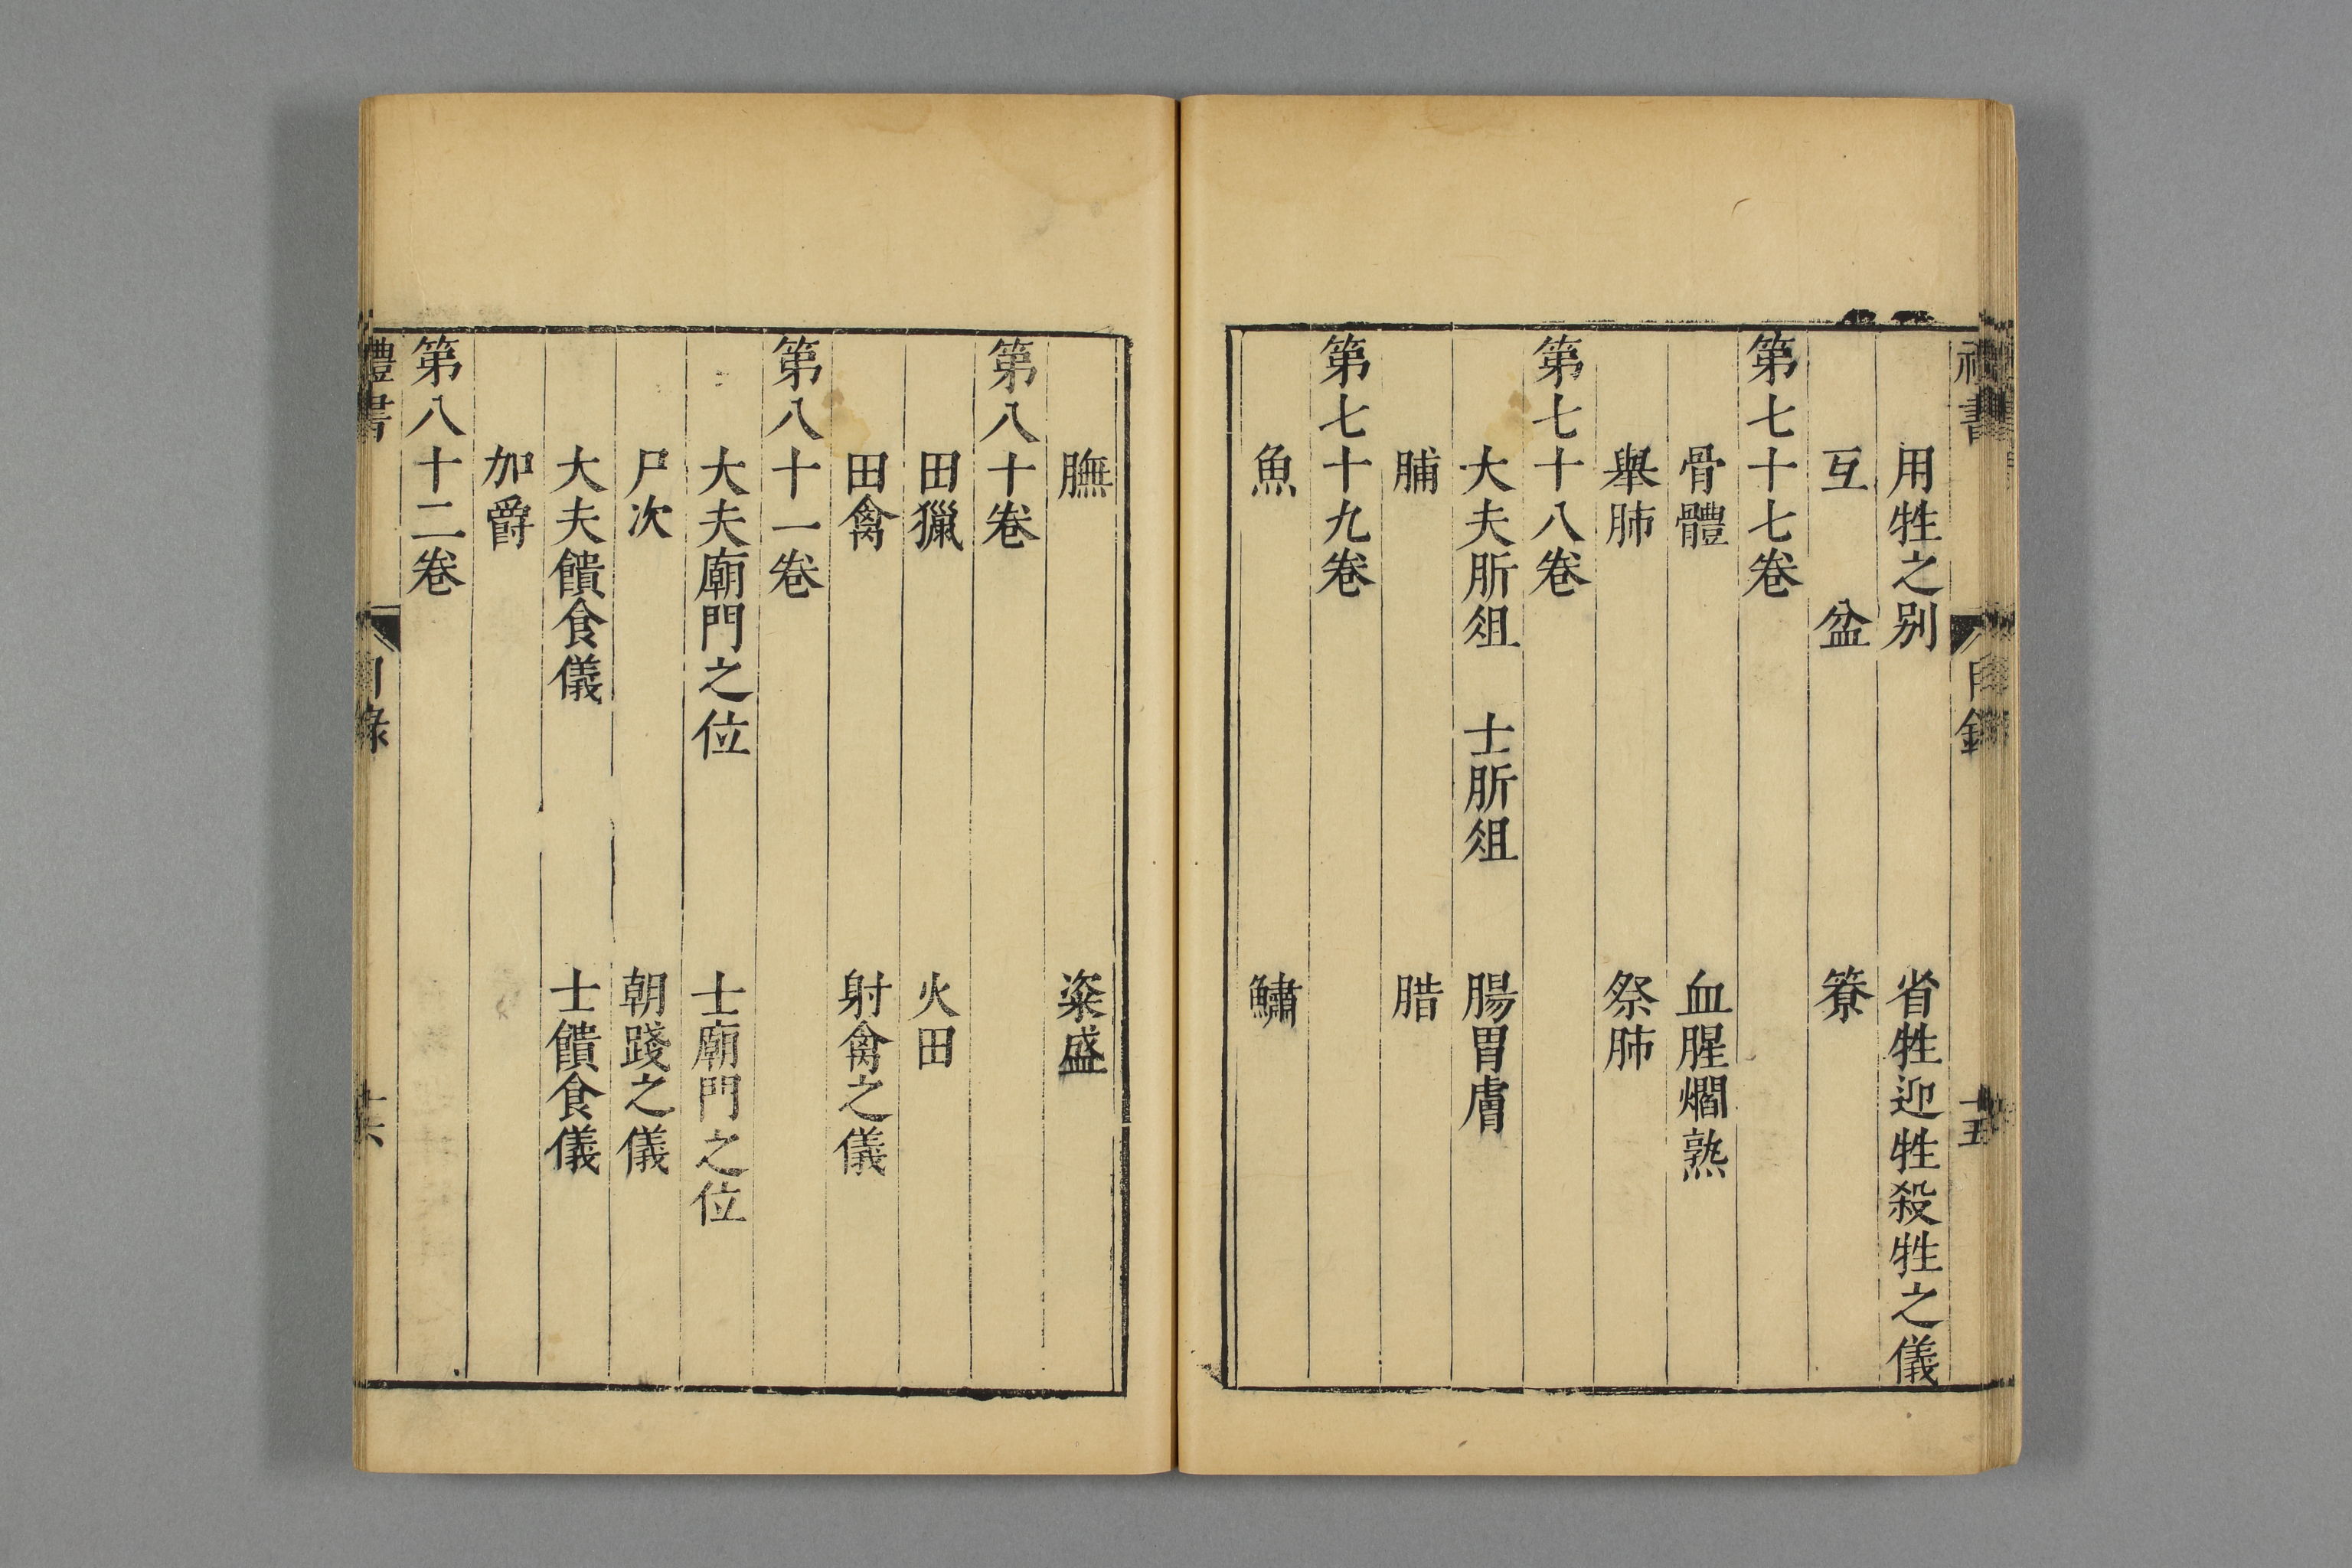 用牲之别 省牲迎牲殺牲之儀
互 盆 簝
第七十七卷
骨體 血腥爓熟
舉肺 祭肺
第七十八卷
大夫肵俎 士肵俎 腸胃膚
脯 腊
第七十九卷
魚 鱐
膴 粢盛
第八十卷
田獵 火田
田禽 射禽之儀
第八十一卷
大夫廟門之位 士廟門之位
尸次 朝踐之儀
大夫饋食儀 士饋食儀
加爵
第八十二卷
禮書